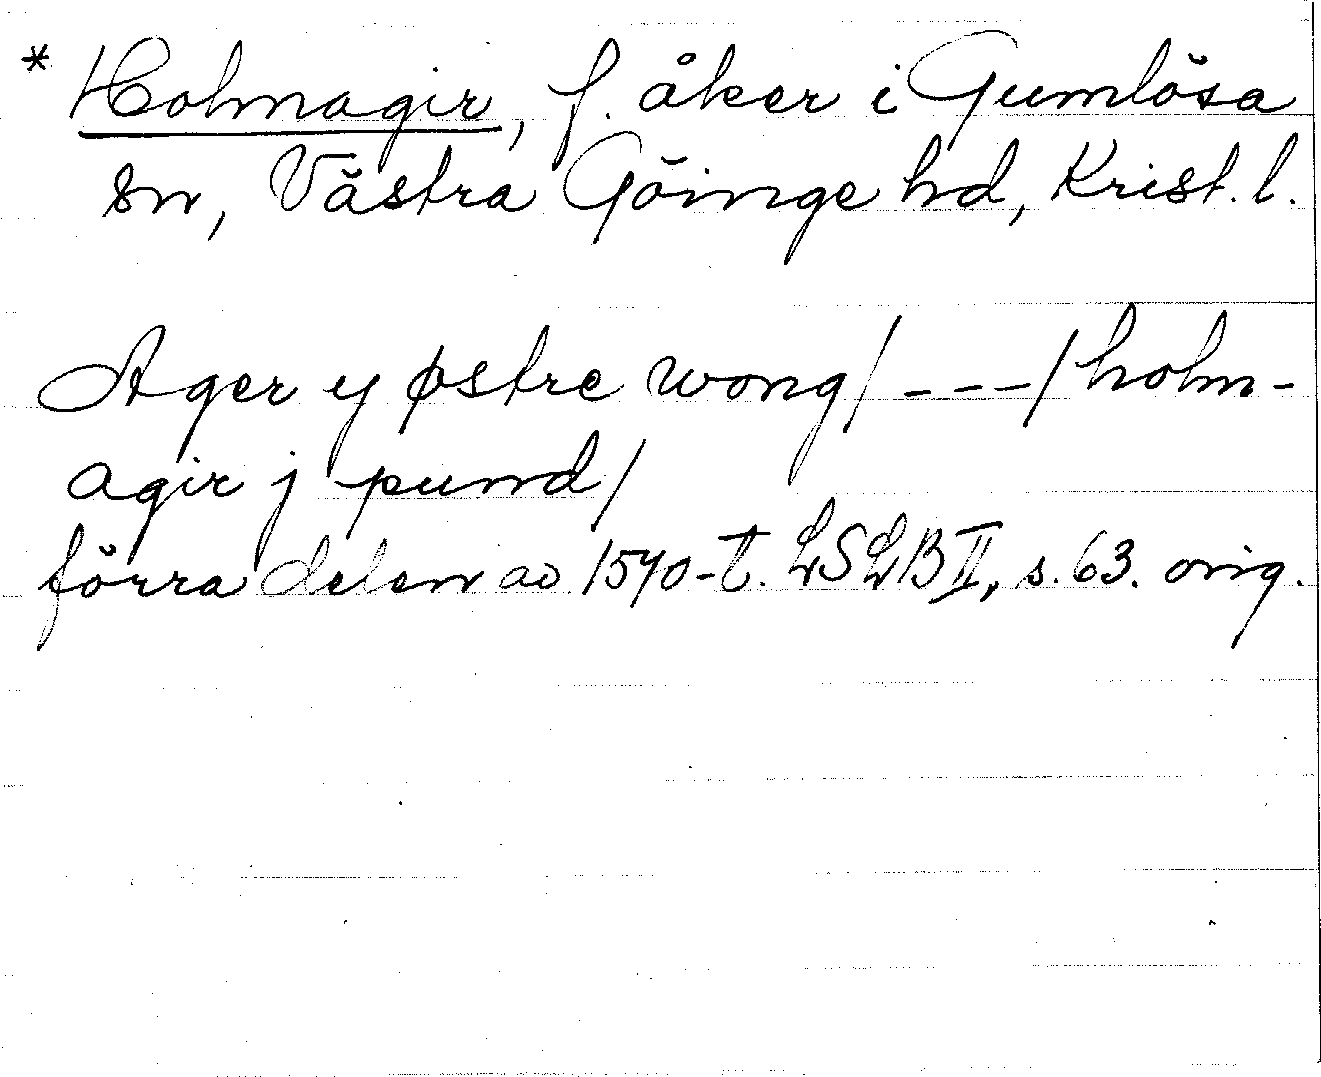 * Holmagir, f. åker i Gumlösa
sn, Västra Göinge hd, Krist. l.
Ager y østre wong/---/holm-
agir j pund/
förra delen av 1570-t. LSLB II, s. 63. orig.